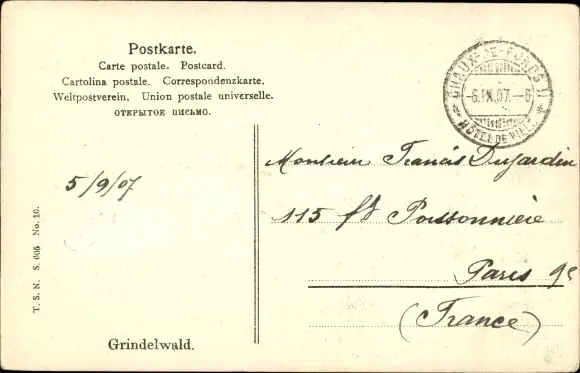 Postkarte.
Carte postale. Postcard.
Cartolina postale. Correspondenzkarte.
Weltpostverein. Union postale universelle.
ОТКРЫТОЕ ПИСЬМО.
CHAUX-DE-FONDS II
6.IX.07.-6
HÔTEL DE VILLE
5/9/07
Monsieur Francis Dujardin
115 fg Poissonnière
Paris 9e
(France)
T. S. N. S. 605 No. 10.
Grindelwald.